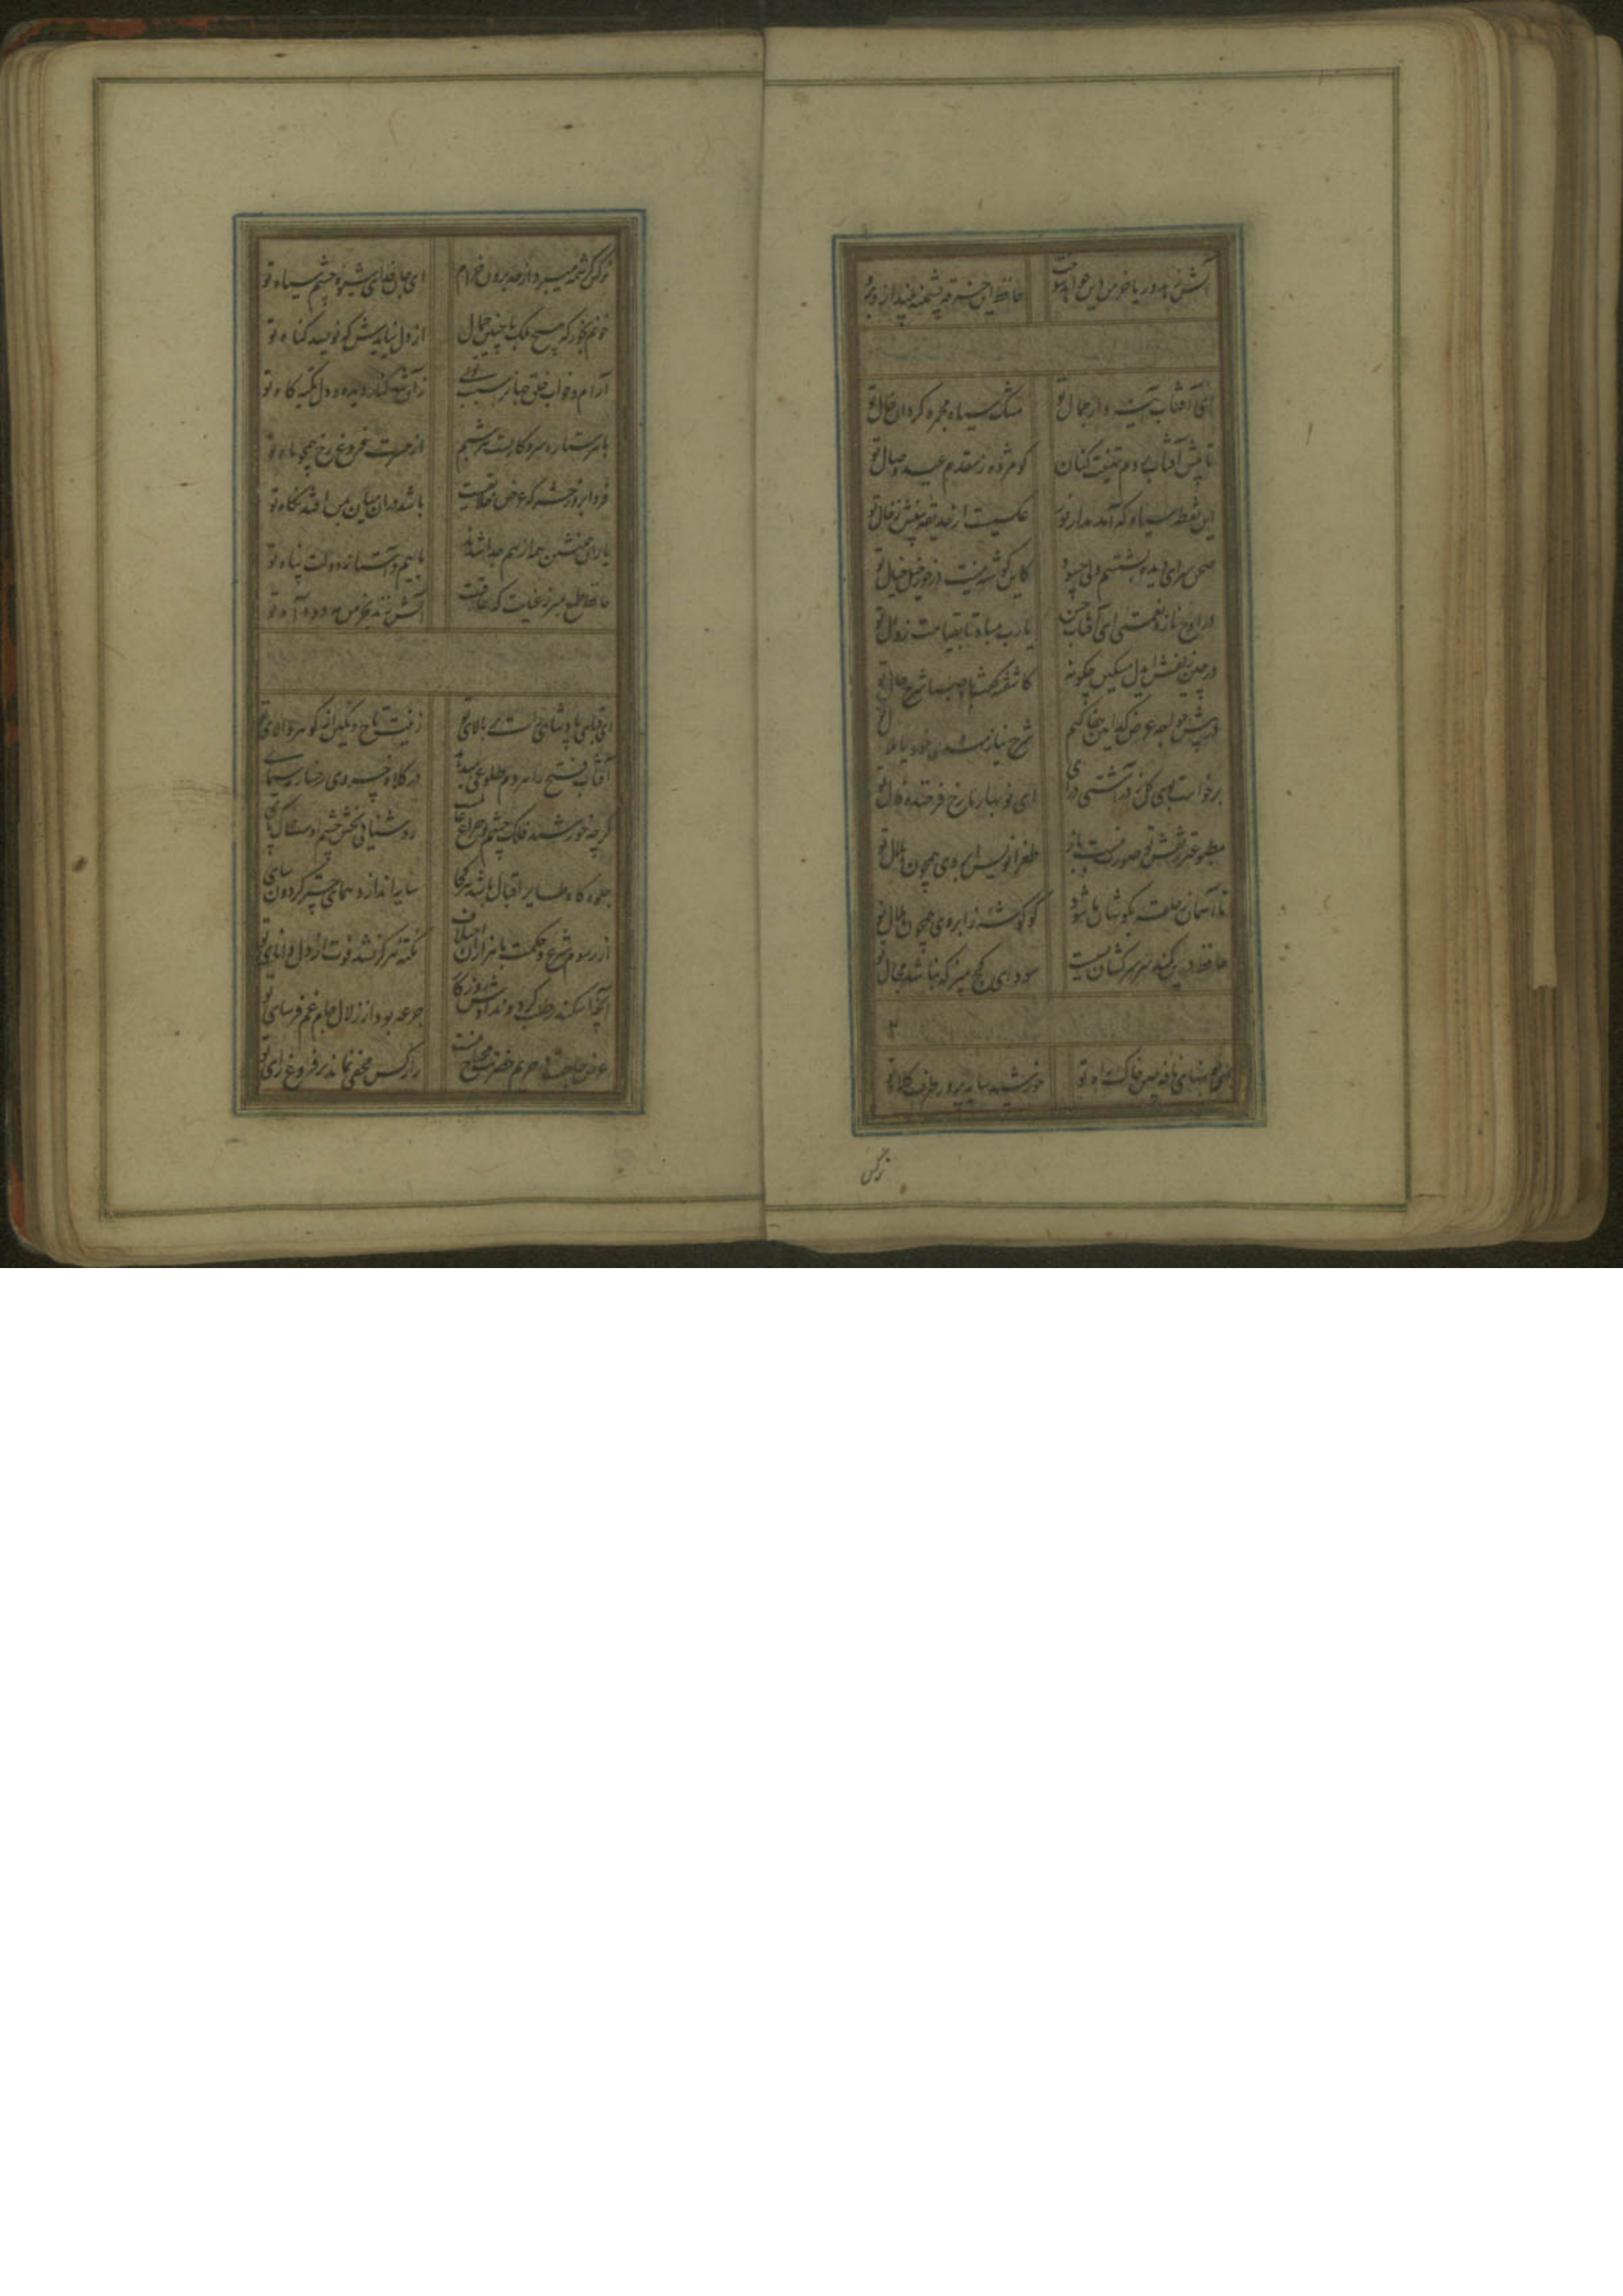 آتش زهد و ریا خرمن دین خواهد سوخت حافظ این خرقه پشمینه بینداز و برو
ای آفتاب آینه دار جمال تو مشک سیاه مجمره گردان خال تو
تا پیش آفتاب دم تهنیت کنان کو مژده ز مقدم عید وصال تو
این نقطه سیاه که آمد مدار نور عکسیست از حدیقه بینش ز خال تو
صحن سرای دیده بشستم ولی چه سود کاین گوشه نیست درخور خیل خیال تو
در اوج ناز و نعمتی ای آفتاب حسن یارب مباد تا بقیامت زوال تو
در چین زلفش ای دل مسکین چگونه کاشفته گفت باد صبا شرح حال تو
در پیش خواجه عرض کدامین جفا کنم شرح نیازمندی خود یا ملال تو
برخاست بوی گل ز در آشتی درای ای نوبهار ما رخ فرخنده فال تو
مطبوعتر ز نقش تو صورت نبست باز طغرانویس ابروی همچون هلال تو
تا آسمان ز حلقه بگوشان ما شود کو گوشه ز ابروی همچون هلال تو
حافظ درین کمند سر سرکشان بسیست سودای کج مپز که نباشد مجال تو
ای خونبهای نافه چین خاک راه تو خورشید سایه پرور طرف کلاه تو
نرگس
نرگس کرشمه میبرد از حد برون خرام ای جان فدای شیوه چشم سیاه تو
خونم بخور که هیچ ملک با چنین جمال از دل نیایدش که نویسد گناه تو
آرام و خواب خلق جهانرا سبب تویی زان شد کنار دیده و دل تکیه گاه تو
با هر ستاره سر و کارست هر شبم از حسرت فروغ رخ همچو ماه تو
فردا بروز حشر که عرض خلایقست باشد دران میان بمن افتد نگاه تو
یاران همنشین همه از هم جدا شدند ماییم و آستانه دولت پناه تو
حافظ طمع مبر ز عنایت که عاقبت آتش زند بخرمن غم دود آه تو
ای قبای پادشاهی راست بر بالای تو زینت تاج و نگین از گوهر والای تو
آفتاب فتح را هر دم طلوعی میدهد در کلاه خسروی رخسار مه سیمای تو
گرچه خورشید فلک چشم و چراغ عالمست روشنایی بخش چشم اوست خاک پای تو
جلوه گاه طایر اقبال باشد هر کجا سایه اندازد همای چتر گردون سای تو
از رسوم شرع و حکمت با هزاران اختلاف نکته هرگز نشد فوت از دل دانای تو
آنچه اسکندر طلب کرد و ندادش روزگار جرعه بود از زلال جام غم فرسای تو
عرض حاجت در حریم حضرتت محتاج نیست راز کس مخفی نماند بر فروغ رای تو